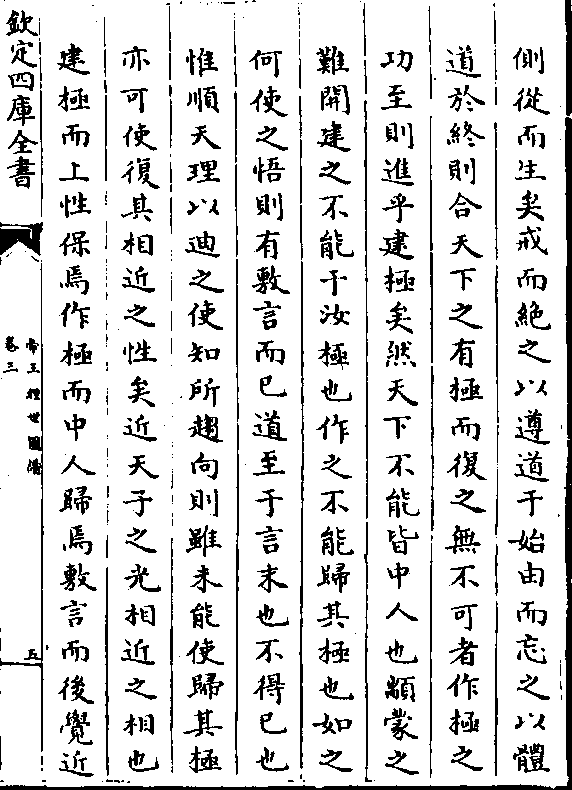 側從而生矣戒而絶之以遵道于始由而忘之以體
道於終則合天下之有極而復之無不可者作極之
功至則進乎建極矣然天下不能皆中人也顓蒙之
難開建之不能于汝極也作之不能歸其極也如之
何使之悟則有敷言而已道至于言末也不得已也
惟順天理以迪之使知所趨向則雖未能使歸其極
亦可使復其相近之性矣近天子之光相近之相也
建極而上性保焉作極而中人歸焉敷言而後覺近
欽定四庫全書
帝王經世圖譜
卷三
五